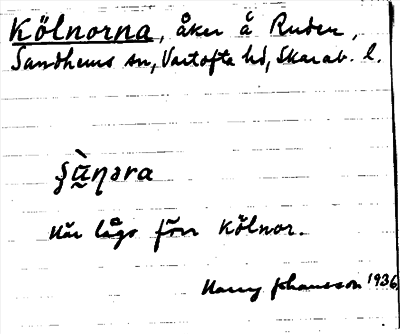 Kölnorna, åker å Ruder,
Sandhems sn, Vartofta hd, Skarab. l.
Här lågo förr kölnor.
Harry Johansson 1936.